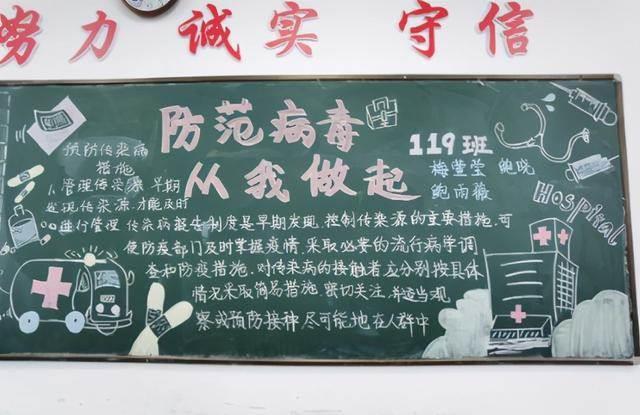 努力 诚实 守信
防范病毒
从我做起
119班
梅莹莹 鲍晓
鲍雨薇
预防传染病
措施
1、管理传染源 早期
发现传染源,才能及时
进行管理 传染病报告制度是早期发现,控制传染源的重要措施,可
使防疫部门及时掌握疫情,采取必要的流行病学调
查和防疫措施、对传染病的接触者应分别按具体
情况采取简易措施 密切关注,并适当观
察或预防接种 尽可能地在人群中
Hospital